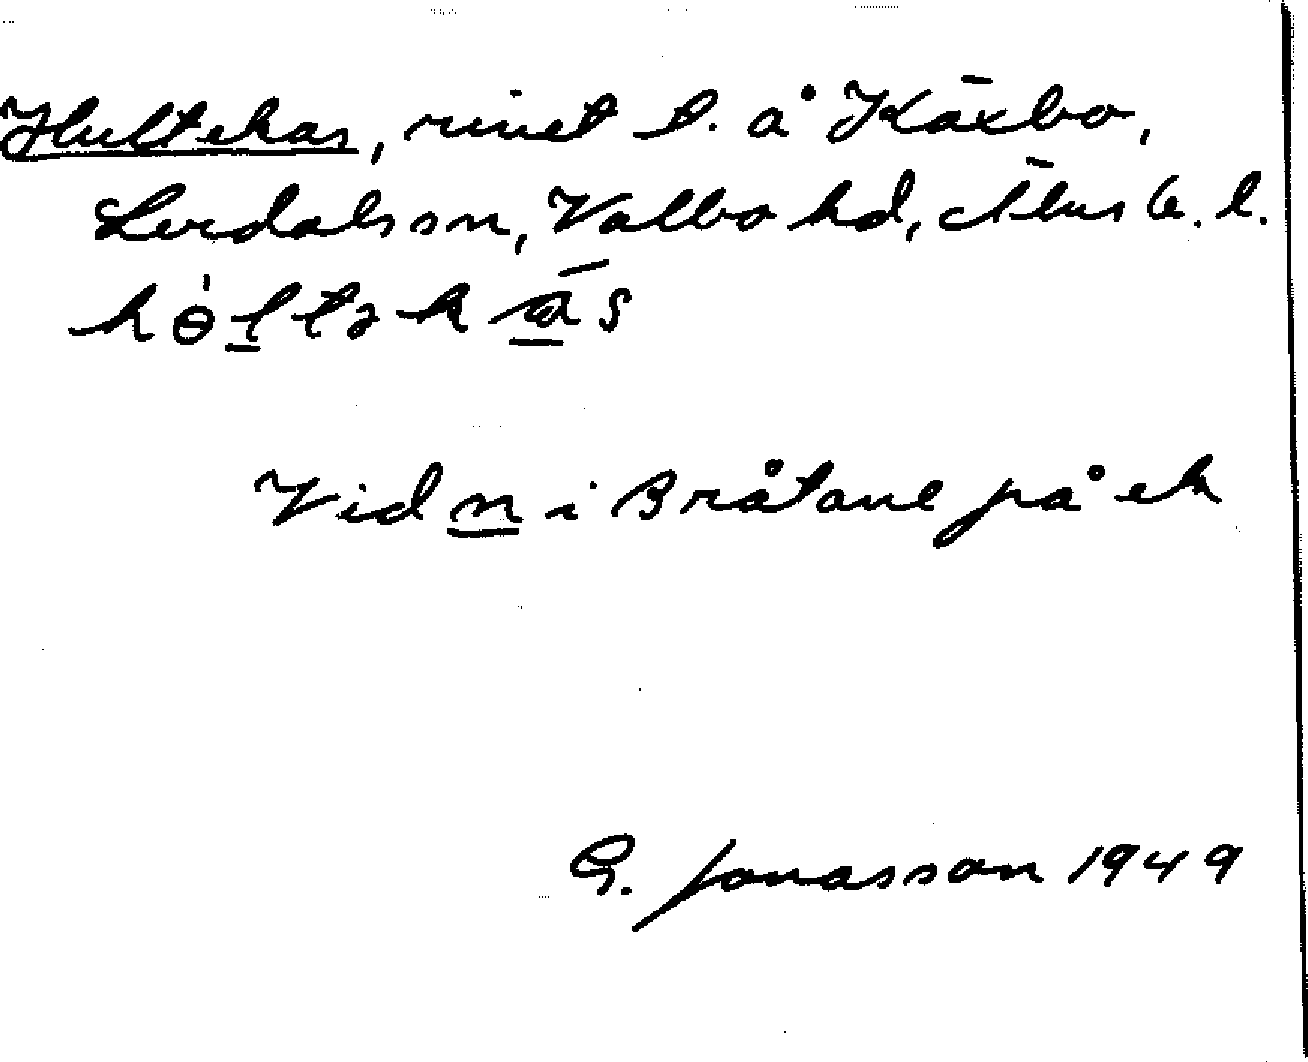 Hultekas, rivet t. å Käxbo,
Lerdals sn, Valbo hd, Älvsb. l.
Vid n i Bråtane på ek
G. Jonasson 1949